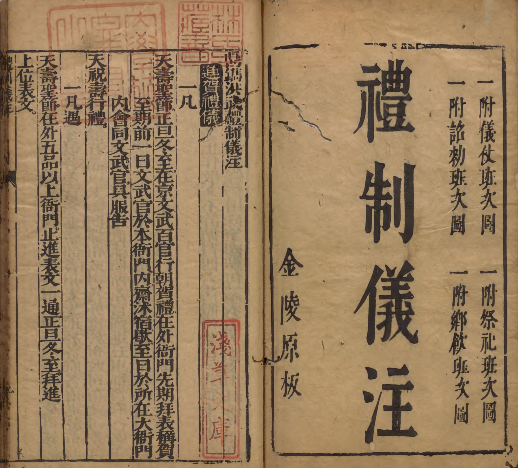 一附儀仗班次圖 一附祭祀班次圖
一附詔勅班次圖 一附鄉飲班次圖
禮制儀注
金陵原板
洪武禮制儀注
進賀禮儀
一凡
天壽聖節正旦冬至在京文武百官行朝賀禮在外衙門先期拜表稱賀
至期前一日文武官於本衙門內齋沐宿歇至日於所在大衙門
內會同文武官具服告
天祝壽行禮
一凡遇
天壽聖節在外五品以上衙門止進表文一通正旦冬至拜進
上位表文
淺草文庫